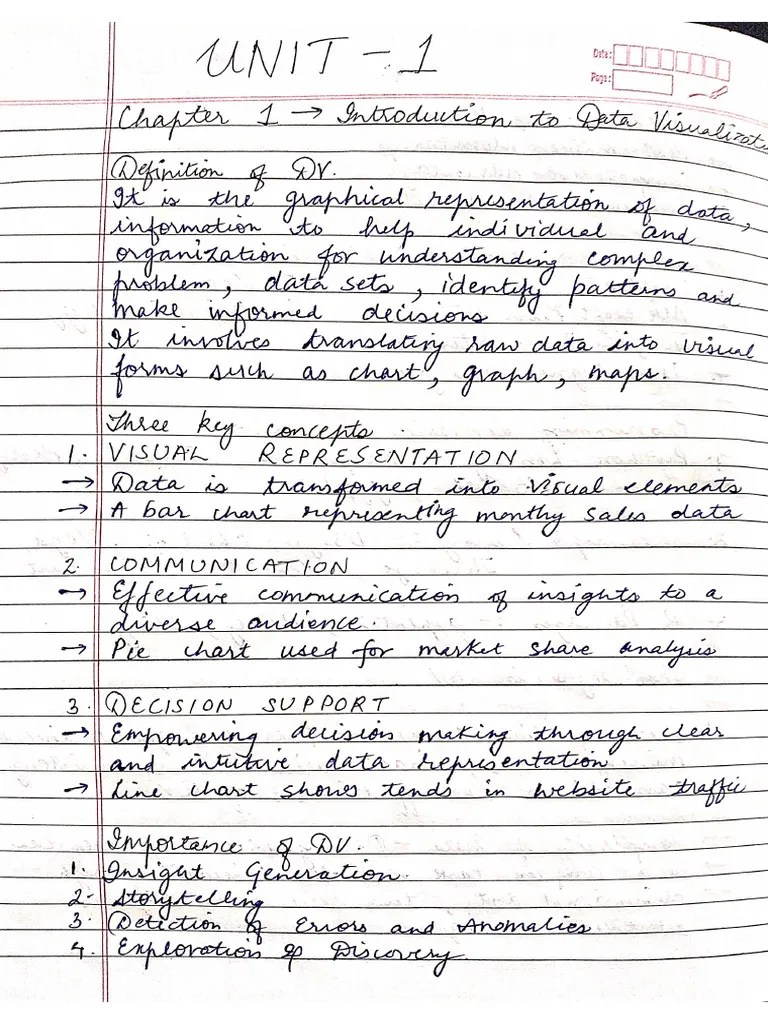 UNIT - 1
Date:
Page:
Chapter 1 → Introduction to Data Visualizat
Definition of DV.
It is the graphical representation of data,
information to help individual and
organization for understanding complex
problem, data sets, identify patterns and
make informed decisions
It involves translating raw data into visual
forms such as chart, graph, maps.
Three key concepts
1. VISUAL REPRESENTATION
→ Data is transformed into visual elements
→ A bar chart representing monthy sales data
2. COMMUNICATION
→ Effective communication of insights to a
diverse audience.
→ Pie chart used for market share analysis
3. DECISION SUPPORT
→ Empowering decision making through clear
and intutive data representation
→ Line chart shows tends in website traffic
Importance of DV.
1. Insight Generation.
2. Storytelling
3. Detection of Errors and Anomalies
4. Exploration & Discovery